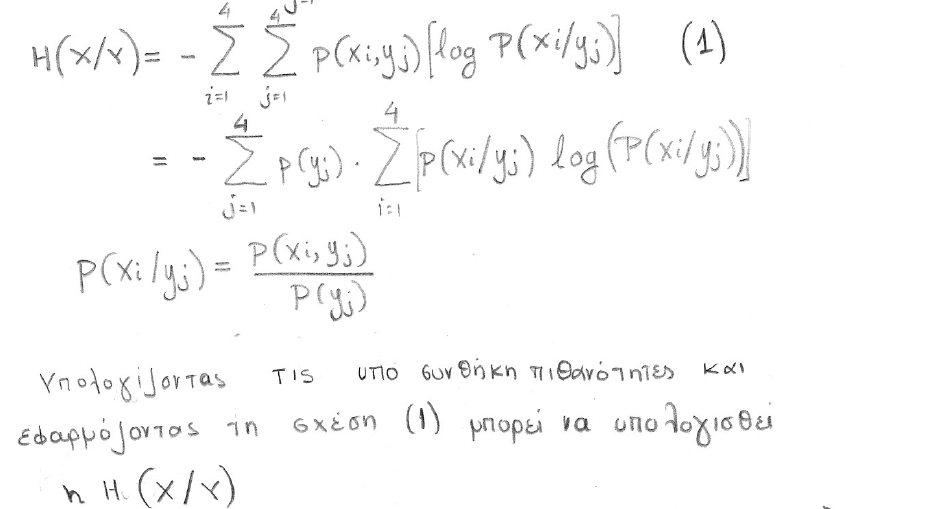 H(X/Y) = - 4∑i=1 4∑j=1 P(xi,yj) [log P(xi/yj)] (1)
= - 4∑j=1 p(yj) · 4∑i=1 [p(xi/yj) log(P(xi/yj))]
P(xi/yj) = P(xi,yj) / P(yj)
Υπολογίζοντας τις υπο συνθήκη πιθανότητες και
εφαρμόζοντας τη σχέση (1) μπορεί να υπολογισθεί
η H (X/Y)